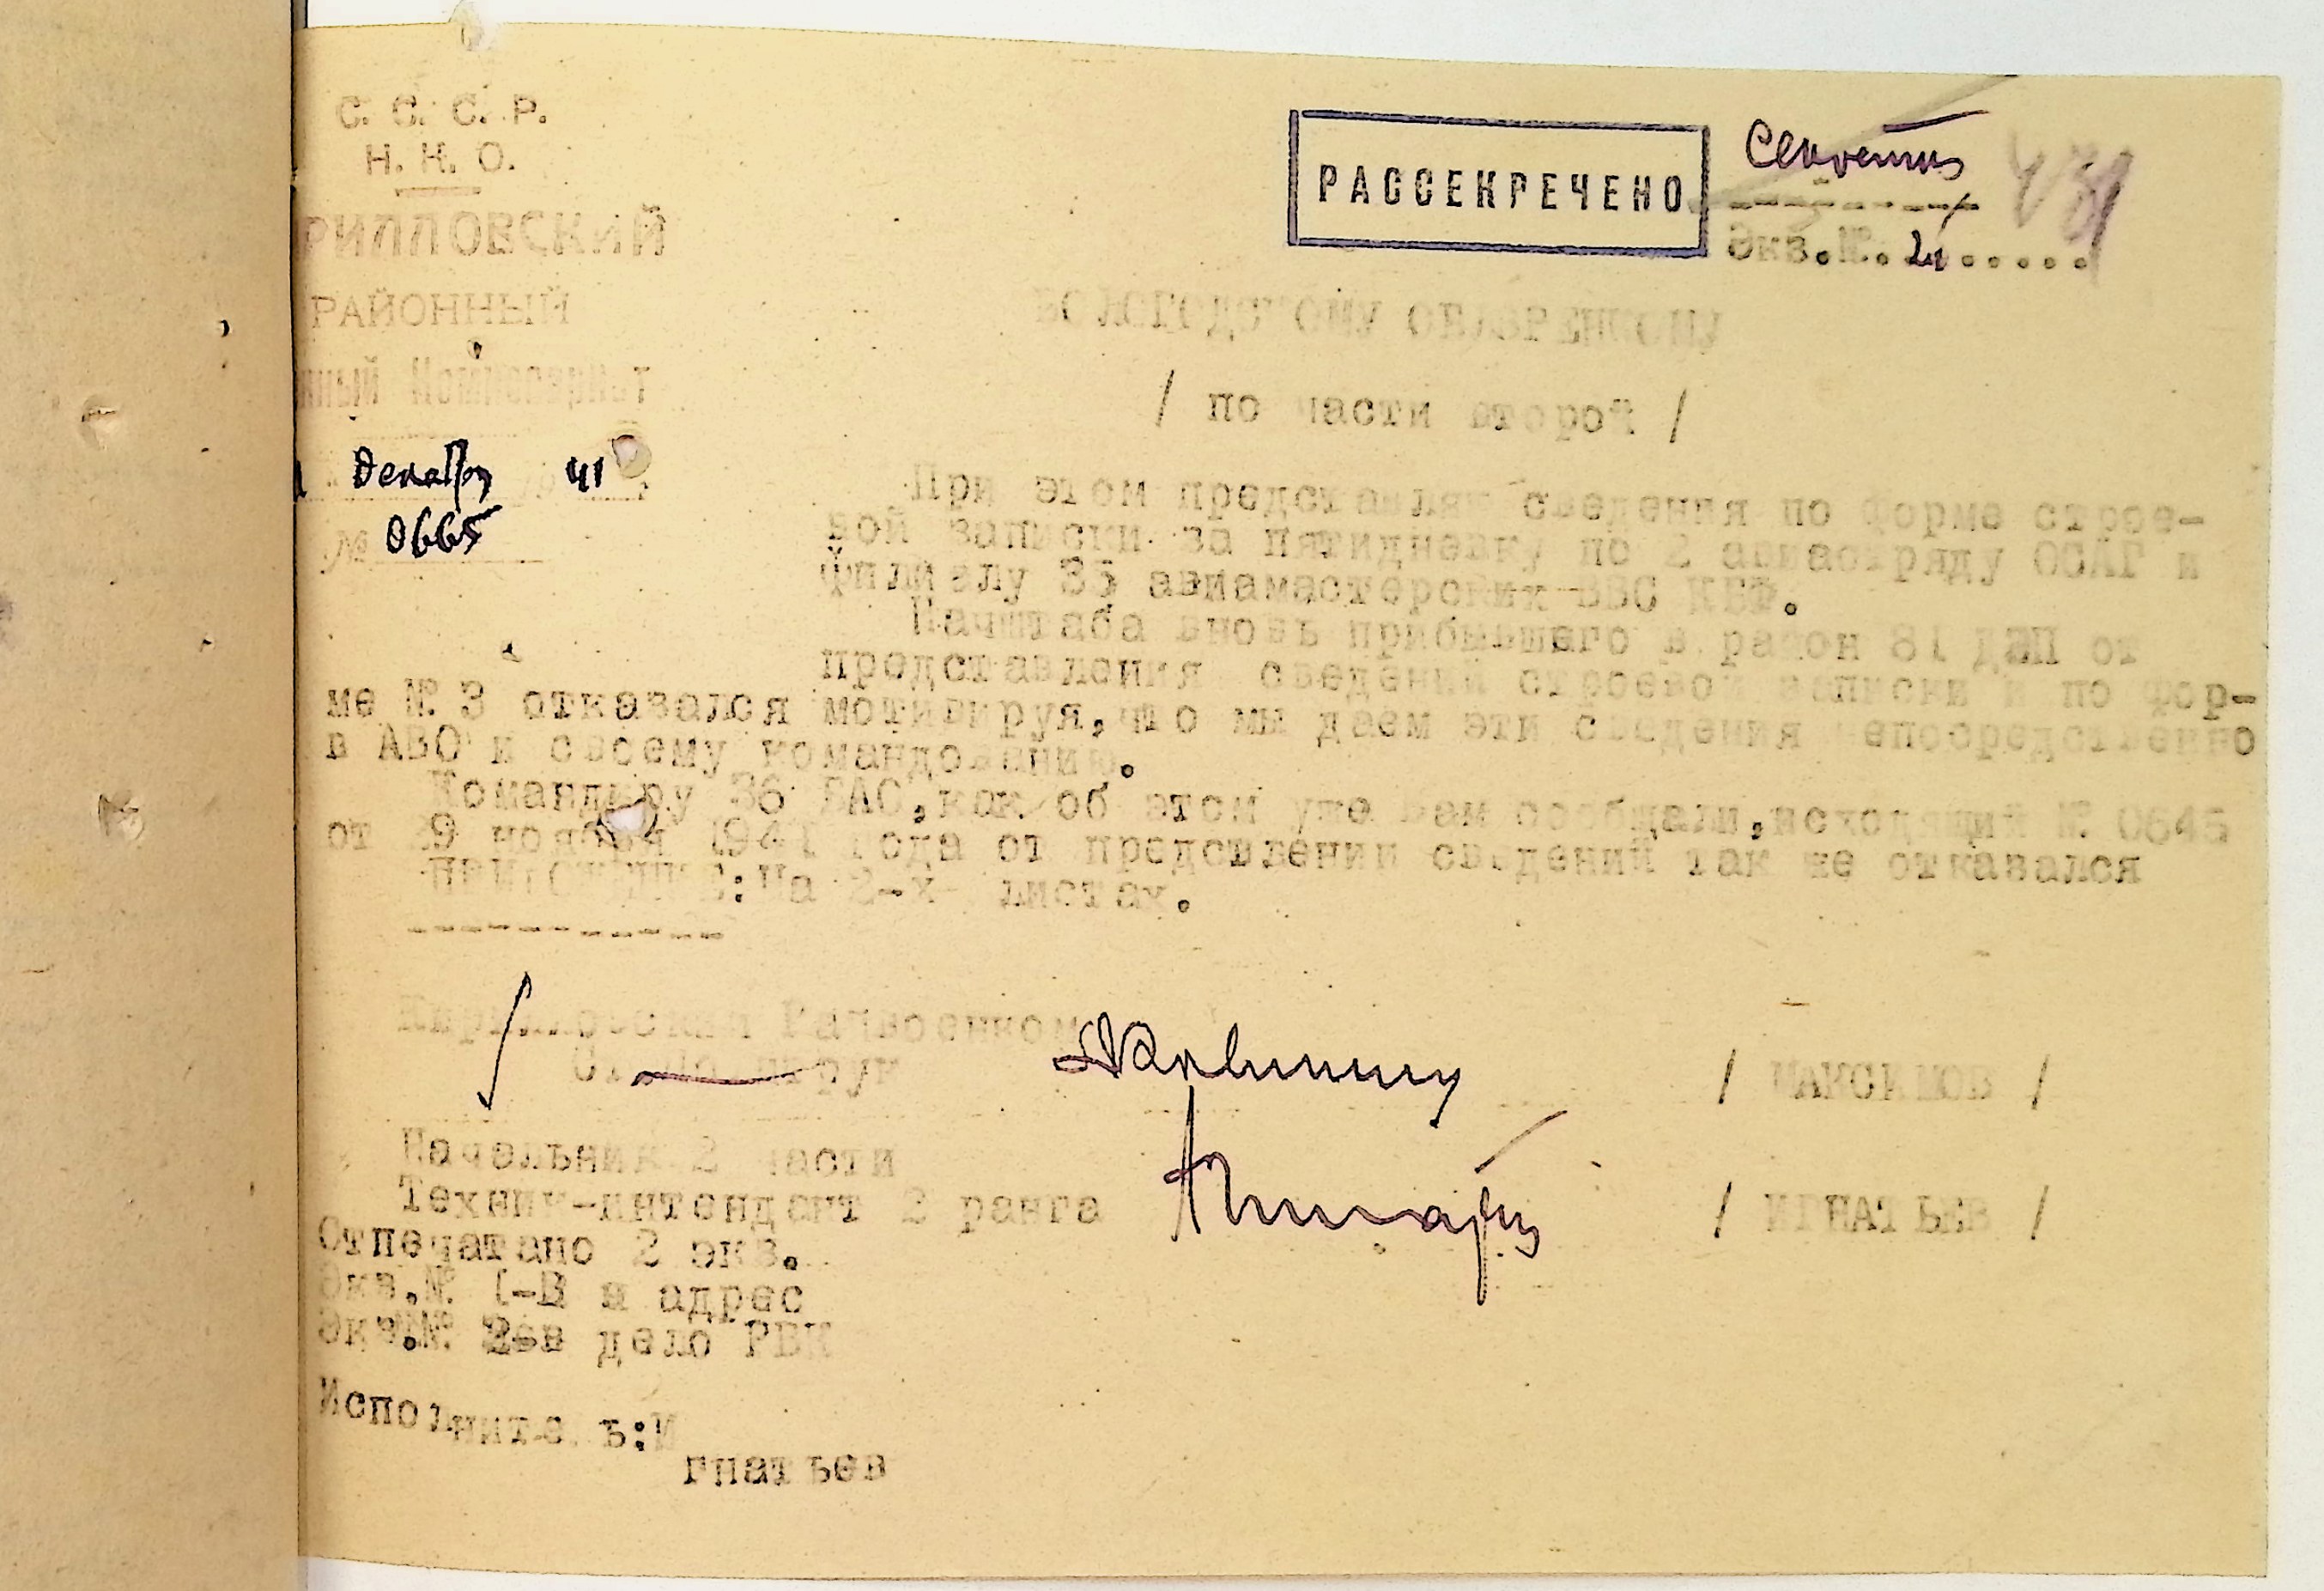 С. С. С. Р.
Н. К. О.
РИЛЛОВСКИЙ
РАЙОННЫЙ
нный Комиссариат
Декабря 41
№ 0665
РАССЕКРЕЧЕНО
Секретно
Экз.№. 2......
ВОЛОГОДСКОМУ ОБЛВОЕНКОМУ
/ по части второй /
При этом представляю сведения по форме строе-
вой записки за пятидневку по 2 авиаотряду ОСАГ и
филиалу 35 авиамастерских ВВС КБФ.
Начштаба вновь прибывшего в район 81 ДЭП от
представления сведений строевой записки и по фор-
ме № 3 отказался мотивируя,что мы даем эти сведения непосредственно
в АВО и своему командованию.
Командиру 36 РАС,как об этом уже Вам сообщали,исходящий №
от 9 ноября 1941 года от предствении сведений так же отказался
ПРИЛОЖЕНИЕ:На 2-х листах.
Кирилловский Райвоенком
/ МАКСИМОВ /
Начальник 2 части
Техник-интендант 2 ранга
/ ИГНАТЬЕВ /
Отпечатано 2 экз.
Экз.№ 1-В адрес
Экз.№ 2-в дело РВК
Исполнитель:И
гнатьев